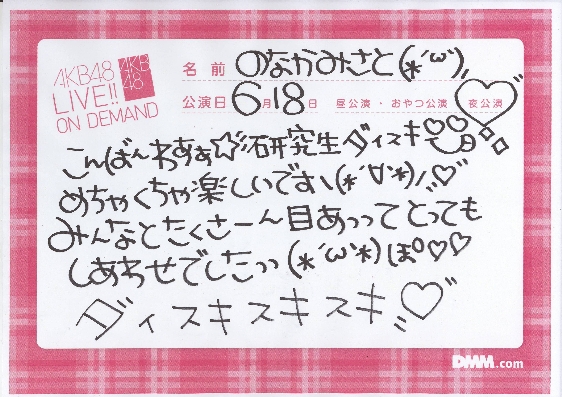 AKB48
LIVE!!
ON DEMAND
AKB
48
名前 のなかみさと(*´ω`)
公演日 6月18日 昼公演・おやつ公演 夜公演
こんばんわあぁ☆研究生ダイスキ♡
めちゃくちゃ楽しいですヽ(*´∀`*)ﾉ♡
みんなとたくさーん目あってとっても
しあわせでしたっっ(*´ω`*)ぽ♡♡
ダイスキスキスキ♡
DMM.com